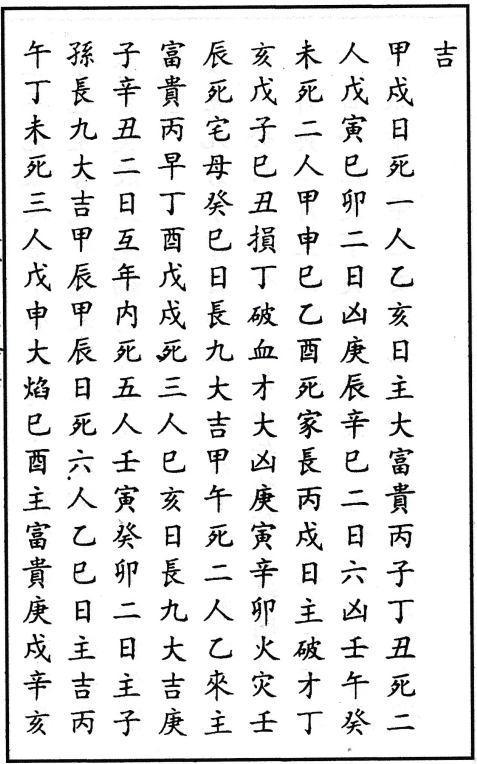 吉
甲戍日死一人乙亥日主大富貴丙子丁丑死二
人戊寅巳卯二日凶庚辰辛巳二日六凶壬午癸
未死二人甲申巳乙酉死家長丙戍日主破才丁
亥戊子巳丑損丁破血才大凶庚寅辛卯火灾壬
辰死宅母癸巳日長九大吉甲午死二人乙來主
富貴丙早丁酉戊戍死三人巳亥日長九大吉庚
子辛丑二日互年内死五人壬寅癸卯二日主子
孫長九大吉甲辰甲辰日死六人乙巳日主吉丙
午丁未死三人戊申大焰巳酉主富貴庚戍辛亥